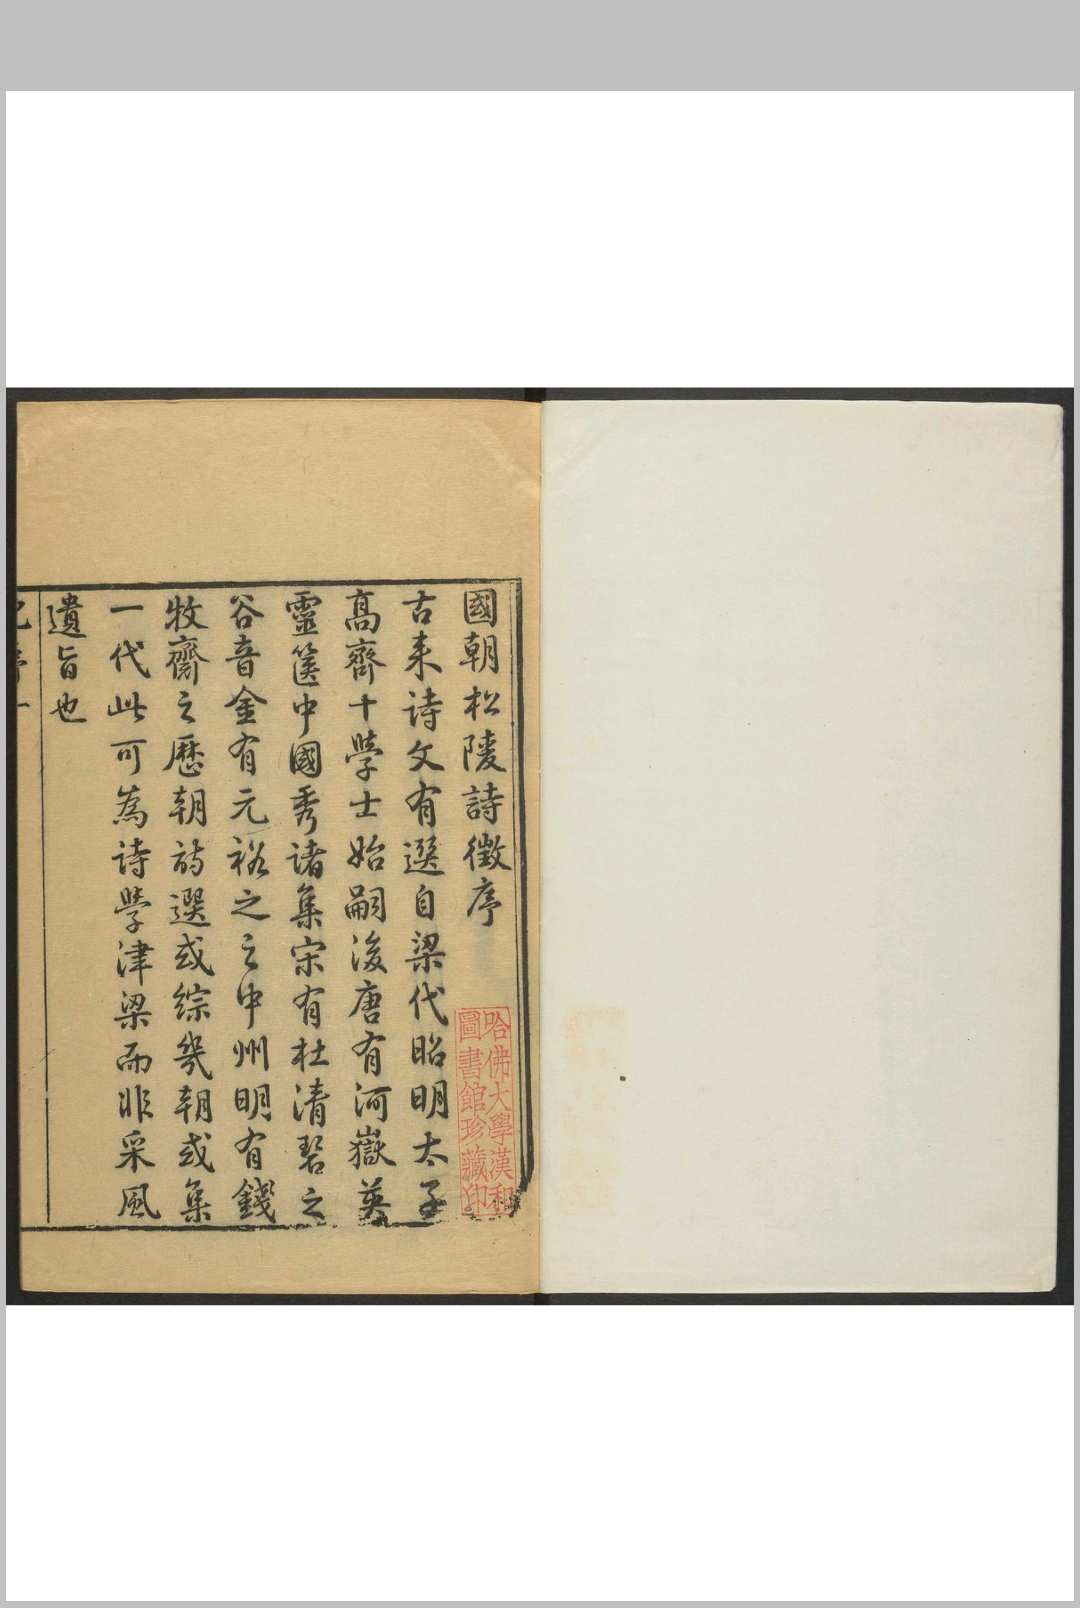 國朝松陵詩徵序
古来詩文有選自梁代昭明太子
髙齊十學士始嗣後唐有河嶽英
靈篋中國秀諸集宋有杜清碧之
谷音金有元裕之之中州明有錢
牧齋之歷朝詩選或綜幾朝或集
一代此可為詩學津梁而非采風
遺旨也
哈佛大學漢和
圖書館珍藏印